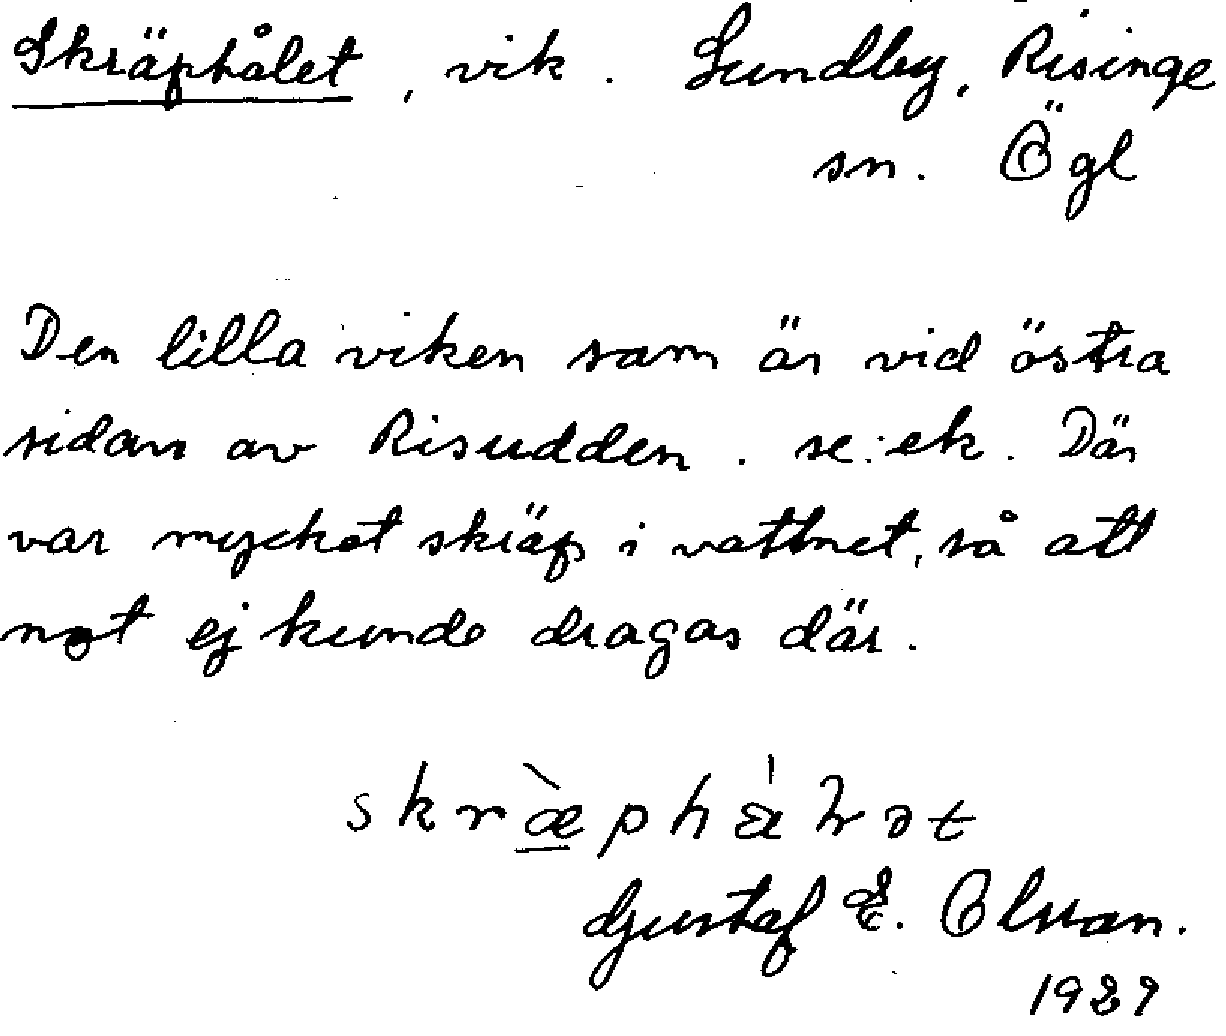 Skräphålet, vik. Lundby, Risinge
sn. Ögl
Den lilla viken som är vid östra
sidan av Risudden. se: ek. Där
var mycket skräp i vattnet, så att
not ej kunde dragas där.
skræ̀phålət
Gustaf E. Olsson.